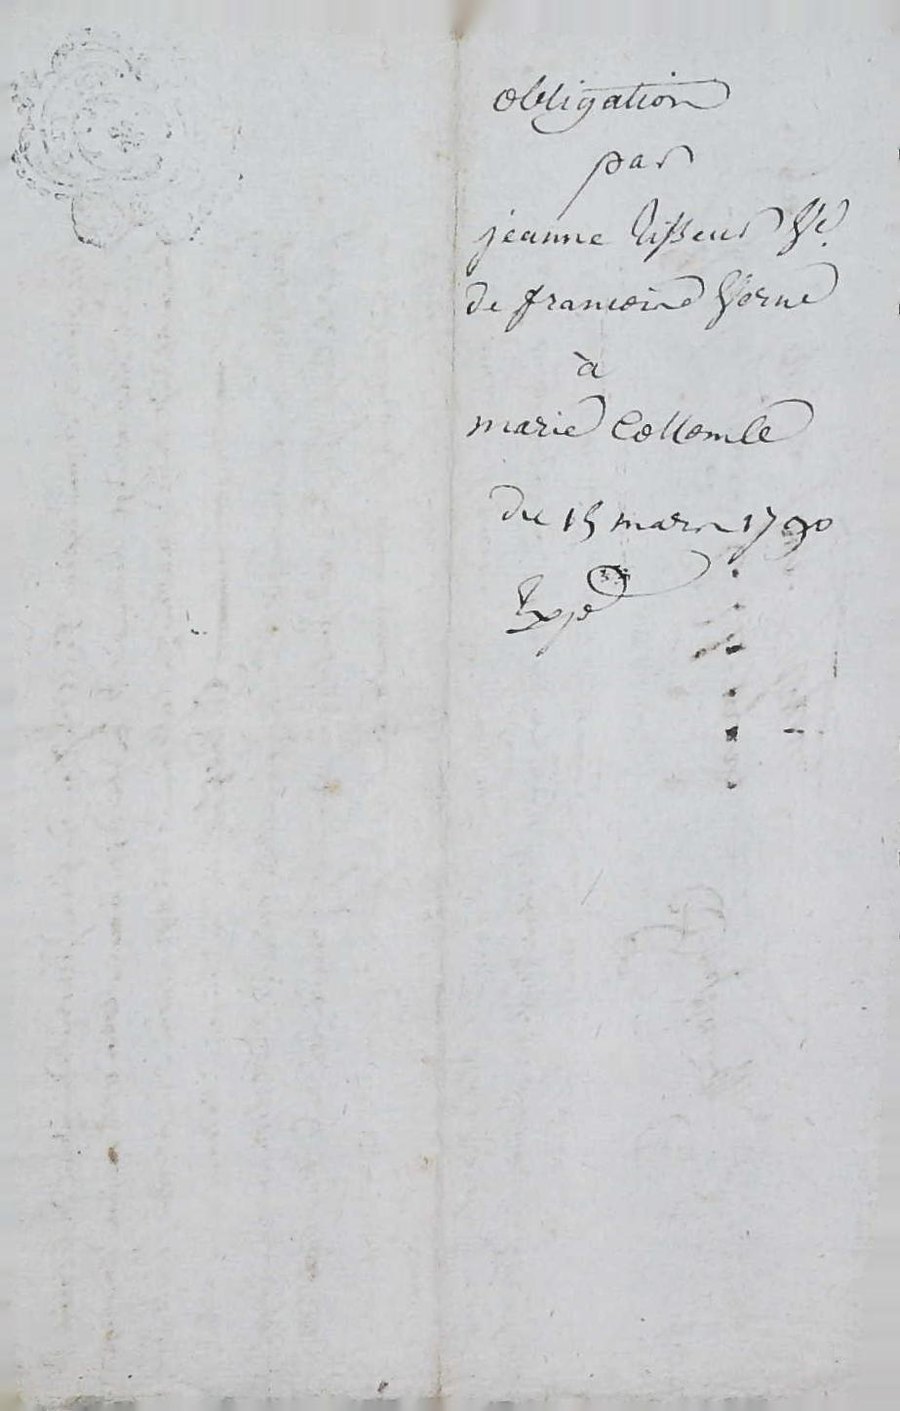 obligation
par
jeanne Tisseur Ve.
de francoise Verne
à
marie Collomb
du 15 mars 1790
Expé